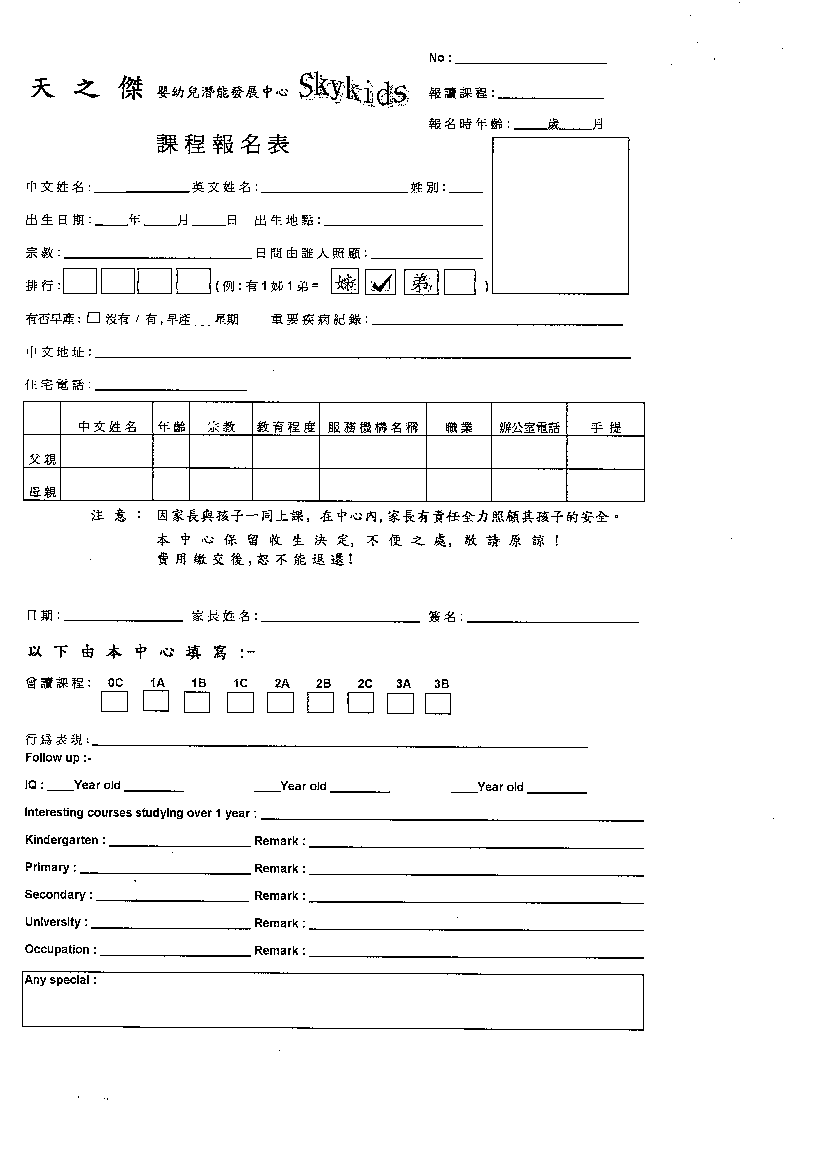 No :
天之傑 嬰幼兒潛能發展中心 Skykids 報讀課程:
報名時年齡: 歲 月
課程報名表
中文姓名: 英文姓名: 姓別:
出生日期: 年 月 日 出生地點:
宗教: 日間由誰人照顧:
排行: (例:有1姊1弟= 姊 ✓ 弟 )
有否早產: □ 沒有 / 有,早產 星期 重要疾病記錄:
中文地址:
住宅電話:
中文姓名 年齡 宗教 教育程度 服務機構名稱 職業 辦公室電話 手提
父親
母親
注意: 因家長與孩子一同上課, 在中心內,家長有責任全力照顧其孩子的安全。
本中心保留收生決定, 不便之處, 敬請原諒!
費用繳交後,恕不能退還!
日期: 家長姓名: 簽名:
以下由本中心填寫:-
曾讀課程: 0C 1A 1B 1C 2A 2B 2C 3A 3B
行為表現:
Follow up :-
IQ : Year old Year old Year old
Interesting courses studying over 1 year :
Kindergarten : Remark :
Primary : Remark :
Secondary : Remark :
University : Remark :
Occupation : Remark :
Any special :